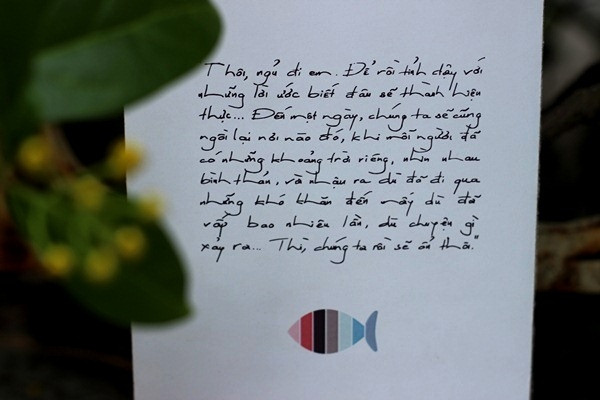 Thôi, ngủ đi em. Để rồi tỉnh dậy với
những lời ước biết đâu sẽ thành hiện
thực... Đến một ngày, chúng ta sẽ cùng
ngồi lại nơi nào đó, khi mỗi người đã
có những khoảng trời riêng, nhìn nhau
bình thản, và nhận ra dù đã đi qua
những khó khăn đến mấy dù đã
vấp bao nhiêu lần, dù chuyện gì
xảy ra... Thì, chúng ta rồi sẽ ổn thôi."